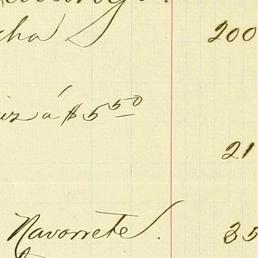 cha 200
iz á $5 50
21
Navorrete. 35